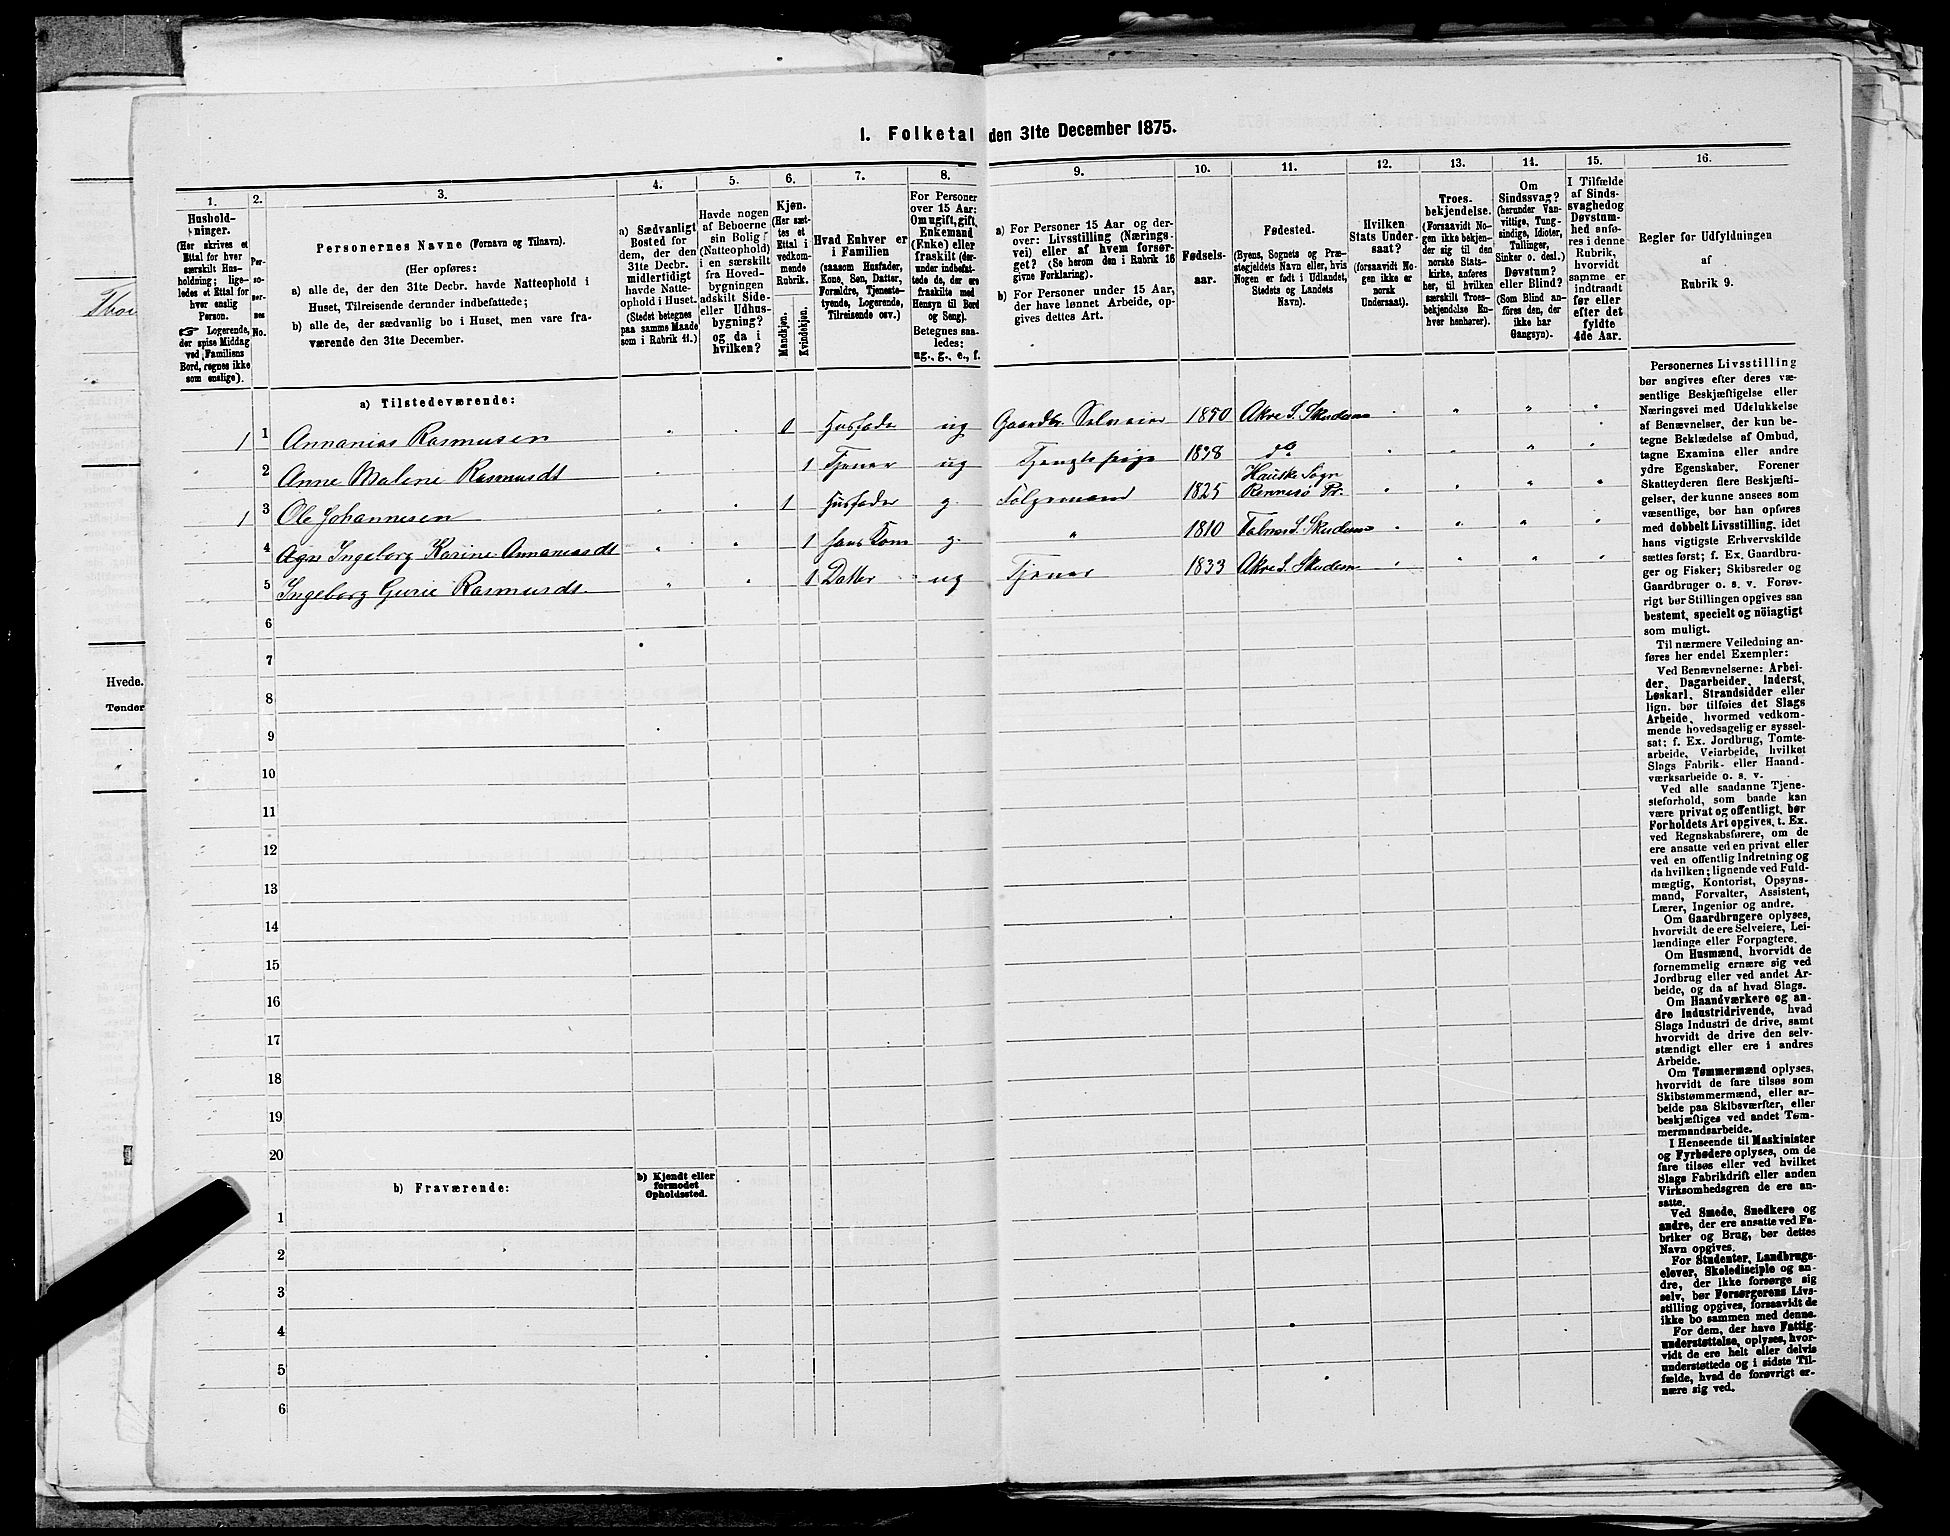 1. Folketal den 31te December 1875.
1.
2.
3.
4.
5.
6.
7.
8.
9.
10.
11.
12.
13.
14.
15.
16.
Hushold-
ninger.
(Her skrives et
Ettal for hver
særskilt Hus-
holdning; lige-
ledes et Ettal for
hver enslig
Person.
☞ Logerende,
der spise Middag
ved Familiens
Bord, regnes ikke
som enslige).
Per-
so-
ner-
nes
No.
Personernes Navne (Fornavn og Tilnavn).
(Her opføres:
a) alle de, der den 31te Decbr. havde Natteophold i
Huset, Tilreisende derunder indbefattede;
b) alle de, der sædvanlig bo i Huset, men vare fra-
værende den 31te December.
a) Sædvanligt
Bosted for
dem, der den
31te Decbr.
midlertidigt
havde Natte-
ophold i Huset.
(Stedet betegnes
paa samme Maade
som i Rubrik 11.)
Havde nogen
af Beboerne
sin Bolig
(Natteophold)
i en særskilt
fra Hoved-
bygningen
adskilt Side-
eller Udhus-
bygning?
og da i
hvilken?
Kjøn.
(Her sæt-
tes et
Ettal i
vedkom-
mende
Rubrik.
Mandkjøn.
Kvindekjøn.
Hvad Enhver er
i Familien
(saasom Husfader,
Kone, Søn, Datter,
Forældre, Tjeneste-
tyende, Logerende,
Tilreisende osv.)
For Personer
over 15 Aar:
Om ugift, gift,
Enkemand
(Enke) eller
fraskilt (der-
under indbefat-
tede de, der ere
fraskilte med
Hensyn til Bord
og Seng).
Betegnes saa-
ledes:
ug., g., e., f.
a) For Personer 15 Aar og der-
over: Livsstilling (Nærings-
vei) eller af hvem forsør-
get? (Se herom den i Rubrik 16
givne Forklaring).
b) For Personer under 15 Aar,
der have lønnet Arbeide, op-
gives dettes Art.
Fødsels-
aar.
Fødested.
(Byens, Sognets og Præ-
stegjeldets Navn eller, hvis
Nogen er født i Udlandet,
Stedets og Landets
Navn).
Hvilken
Stats Under-
saat?
(forsaavidt No-
gen ikke er
norsk
Undersaat).
Troes-
bekjendelse.
(Forsaavidt No-
gen ikke bekjen-
der sig til den
norske Stats-
kirke, anføres
her, til hvilken
særskilt Troes-
bekjendelse En-
hver henhører).
Om
Sindssvag?
(herunder Van-
vittige, Tung-
sindige, Idioter,
Tullinger,
Sinker o. desl.)
Døvstum?
eller Blind?
(Som Blind an-
føres den, der
ikke har
Gangsyn).
I Tilfælde
af Sinds-
svaghed og
Døvstum-
hed anfø-
res i denne
Rubrik,
hvorvidt
samme er
indtraadt
før eller
efter det
fyldte
4de Aar.
Regler for Udfyldningen
af
Rubrik 9.
a) Tilstedeværende:
1 1 Annanias Rasmusen " " 1 Husfader ug Gaardbr. Selveier 1850 Akre S. Skudesn " " " "
2 Anne Malene Rasmusdt " " 1 Tjener ug Tjenestepige 1838 do " " " "
1 3 Ole Johannesen " " 1 Husfader g. Folgemand 1825 Hauske Sogn
Rennesø Pr. " " " "
4 Agn Ingeborg Karine Annaniasdt " " 1 hans Kone g. " 1810 Falnes S. Skudesn " " " "
5 Ingeborg Gurie Rasmusdt. " " 1 Datter ug Tjener 1833 Akre S. Skudesn " " " "
6
7
8
9
10
11
12
13
14
15
16
17
18
19
20
b) Fraværende:
b) Kjendt eller
formodet
Opholdssted.
1
2
3
4
5
6
Personernes Livsstilling
bør angives efter deres væ-
sentlige Beskjæftigelse eller
Næringsvei med Udelukkelse
af Benævnelser, der kun be-
tegne Beklædelse af Ombud,
tagne Examina eller andre
ydre Egenskaber. Forener
Skatteyderen flere Beskjæfti-
gelser, der kunne ansees som
væsentlige, bør han opføres
med dobbelt Livsstilling, idet
hans vigtigste Erhvervskilde
sættes først; f. Ex. Gaardbru-
ger og Fisker; Skibsreder og
Gaardbruger o. s. v. Forøv-
rigt bør Stillingen opgives saa
bestemt, specielt og nöiagtigt
som muligt.
Til nærmere Veiledning an-
føres her endel Exempler:
Ved Benævnelserne: Arbei-
der, Dagarbeider, Inderst,
Løskarl, Strandsidder eller
lign. bør tilføies det Slags
Arbeide, hvormed vedkom-
mende hovedsagelig er syssel-
sat; f. Ex. Jordbrug, Tomte-
arbeide, Veiarbeide, hvilket
Slags Fabrik- eller Haand-
værksarbeide o. s. v.
Ved alle saadanne Tjene-
steforhold, som baade kan
være privat og offentligt, bør
Forholdets Art opgives, t. Ex.
ved Regnskabsførere, om de
ere ansatte ved en privat eller
ved en offentlig Indretning og
da hvilken; lignende ved Fuld-
mægtig, Kontorist, Opsyns-
mand, Forvalter, Assistent,
Lærer, Ingeniør og andre.
Om Gaardbrugere oplyses,
hvorvidt de ere Selveiere, Lei-
lændinge eller Forpagtere.
Om Husmænd, hvorvidt de
fornemmelig ernære sig ved
Jordbrug eller ved andet Ar-
beide, og da af hvad Slags.
Om Haandværkere og an-
dre Industridrivende, hvad
Slags Industri de drive, samt
hvorvidt de drive den selv-
stændigt eller ere i andres
Arbeide.
Om Tømmermænd oplyses,
hvorvidt de fare tilsøs som
Skibstømmermænd, eller ar-
beide paa Skibsværfter, eller
beskjæftiges ved andet Tøm-
mermandsarbeide.
I Henseende til Maskinister
og Fyrbødere oplyses, om de
fare tilsøs eller ved hvilket
Slags Fabrikdrift eller anden
Virksomhedsgren de ere an-
satte.
Ved Smede, Snedkere og
andre, der ere ansatte ved Fa-
briker og Brug, bør dettes
Navn opgives.
For Studenter, Landbrugs-
elever, Skoledisciple og an-
dre, der ikke forsørge sig
selv, bør Forsørgerens Livs-
stilling opgives, forsaavidt de
ikke bo sammen med denne.
For dem, der have Fattig-
understøttelse, oplyses, hvor-
vidt de ere helt eller delvis
understøttede og i sidste Til-
fælde, hvad de forøvrigt er-
nære sig ved.
Hvede.
Tønder